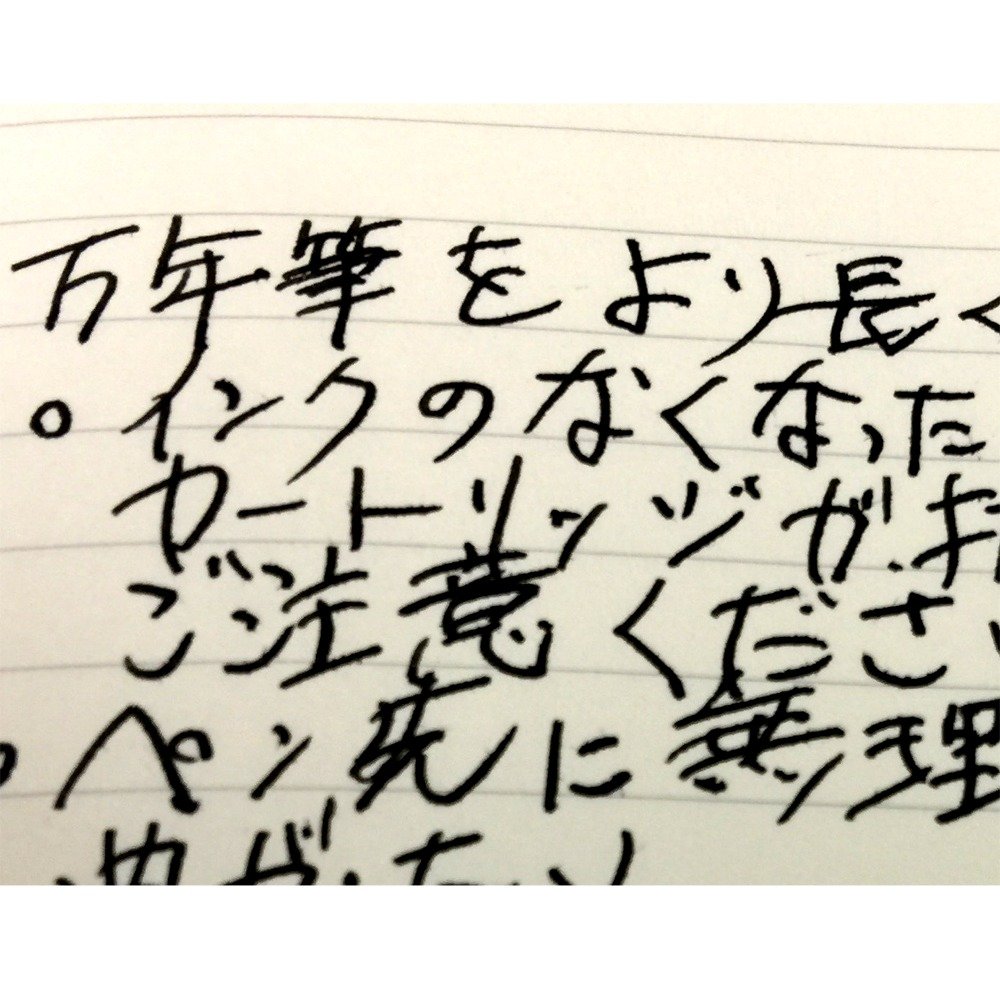 万年筆をより長く
○インクのなくなった
カートリッジが
ご注意くださ
ペン先に無理